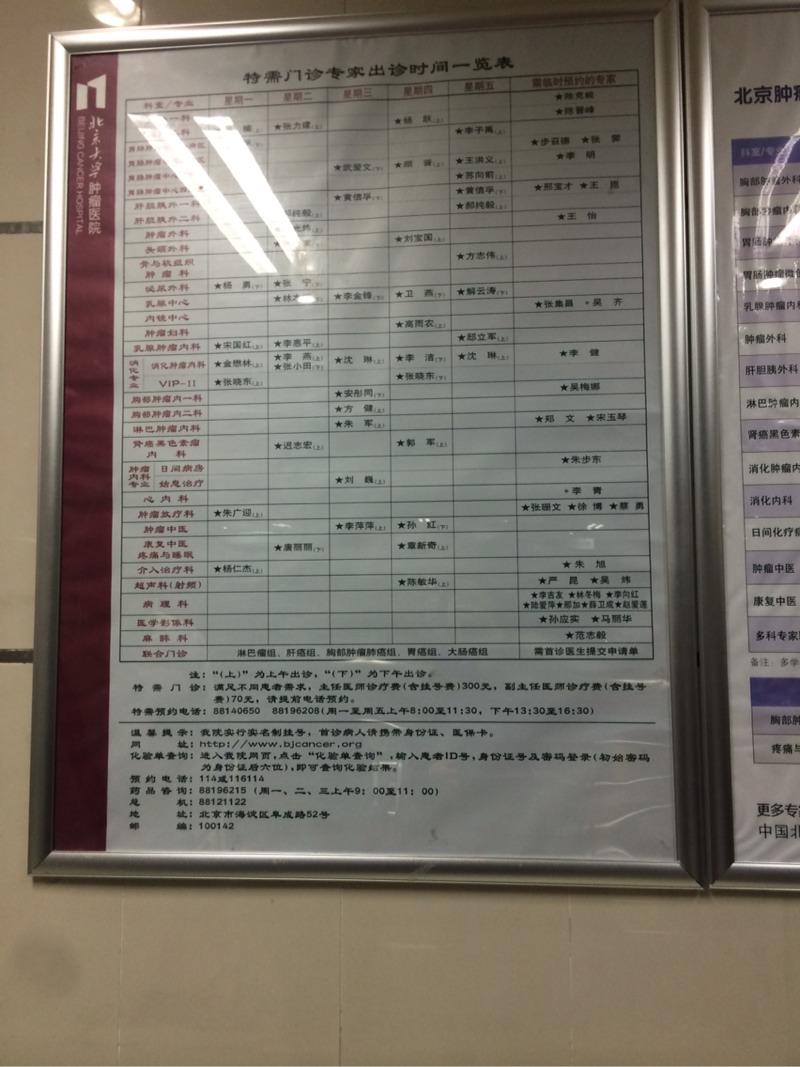 特需门诊专家出诊时间一览表
北京大学肿瘤医院
BEIJING CANCER HOSPITAL
科室/专业 星期一 星期二 星期三 星期四 星期五 需临时预约的专家
★陈克能
★张力建(上) ★杨 跃(上) ★陈晋峰
★李子禹(上)
★步召德 ★张 霁
★武爱文(下) ★顾 晋(上) ★王洪义(上) ★李 明
★苏向前(上)
★黄信孚(上) ★黄信孚(下) ★邢宝才 ★王 崑
肝胆胰外一科 ★郝纯毅(上)
肝胆胰外二科 郝纯毅(上) ★王 怡
肿瘤外科
头颈外科 ★刘宝国(上)
骨与软组织肿瘤科 ★方志伟(上)
泌尿外科 ★杨 勇(下) ★张 宁(下)
乳腺中心 ★李金锋(下) ★卫 燕(下) ★解云涛(下)
内镜中心 ★张集昌 *吴 齐
肿瘤妇科 ★高雨农(上)
乳腺肿瘤内科 ★宋国红(上) ★李惠平(上) ★邸立军(上)
消化专业 消化肿瘤内科 ★金懋林(上) ★李 燕(上) ★张小田(下) ★沈 琳(上) ★李 洁(下) ★沈 琳(上) ★李 健
VIP-II ★张晓东(上) ★张晓东(下)
胸部肿瘤内一科 ★安彤同(下) ★吴梅娜
胸部肿瘤内二科 ★方 健(上)
淋巴肿瘤内科 ★朱 军(上) ★郑 文 ★宋玉琴
肾癌黑色素瘤内科 ★迟志宏(上) ★郭 军(上)
肿瘤内科专业 日间病房 ★朱步东
姑息治疗 ★刘 巍(上)
心内科 *李 青
肿瘤放疗科 ★朱广迎(上) ★张珊文 ★徐 博 ★蔡 勇
肿瘤中医 ★李萍萍(上) ★孙 红(下)
康复中医 疼痛与睡眠 ★唐丽丽(下) ★章新奇(上)
介入治疗科 ★杨仁杰(上) ★朱 旭
超声科(射频) ★陈敏华(上) ★严 昆 ★吴 炜
病理科 ★李吉友 ★林冬梅 ★李向红
★陆爱萍★那加★薛卫成★赵爱莲
医学影像科 ★孙应实 ★马丽华
麻醉科 ★范志毅
联合门诊 淋巴瘤组、肝癌组、胸部肿瘤肺癌组、胃癌组、大肠癌组 需首诊医生提交申请单
注:“(上)”为上午出诊,“(下)”为下午出诊。
特需门诊:满足不同患者需求,主任医师诊疗费(含挂号费)300元,副主任医师诊疗费(含挂号
费)70元,请提前电话预约。
特需预约电话:88140650 88196208(周一至周五上午8:00至11:30,下午13:30至16:30)
温馨提示:我院实行实名制挂号,首诊病人请携带身份证、医保卡。
网 址:http://www.bjcancer.org
化验单查询:进入我院网页,点击“化验单查询”,输入患者ID号,身份证号及密码登录(初始密码
为身份证后六位),即可查询化验结果。
预约电话:114或116114
药品咨询:88196215(周一、二、三上午9:00至11:00)
总 机:88121122
地 址:北京市海淀区阜成路52号
邮 编:100142
北京肿瘤
科室/专业
胸部肿瘤外科
胸部肿瘤内科
胃肠肿瘤外科
胃肠肿瘤微创
乳腺肿瘤内科
肿瘤外科
肝胆胰外科
淋巴肿瘤内
肾癌黑色素
消化肿瘤内
消化内科
日间化疗病
肿瘤中医
康复中医
多科专家
备注:多学
胸部肿
疼痛与
更多专家
中国北